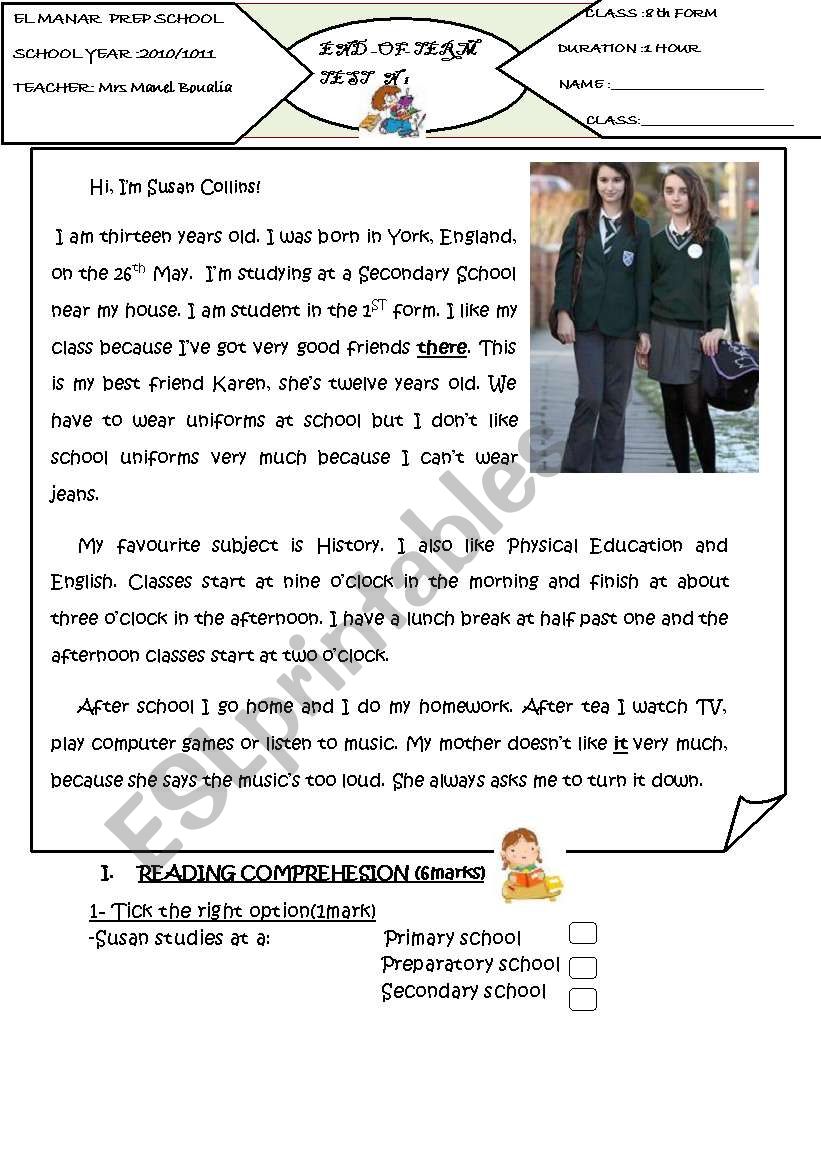 EL MANAR PREP SCHOOL
SCHOOL YEAR :2010/1011
TEACHER: Mrs Manel Boualia
END -OF-TERM
TEST N1
CLASS :8 th FORM
DURATION :1 HOUR
NAME :____________________
CLASS:____________________
Hi, I'm Susan Collins!
I am thirteen years old. I was born in York, England,
on the 26th May. I'm studying at a Secondary School
near my house. I am student in the 1ST form. I like my
class because I've got very good friends there. This
is my best friend Karen, she's twelve years old. We
have to wear uniforms at school but I don't like
school uniforms very much because I can't wear
jeans.
My favourite subject is History. I also like Physical Education and
English. Classes start at nine o'clock in the morning and finish at about
three o'clock in the afternoon. I have a lunch break at half past one and the
afternoon classes start at two o'clock.
After school I go home and I do my homework. After tea I watch TV,
play computer games or listen to music. My mother doesn't like it very much,
because she says the music's too loud. She always asks me to turn it down.
ESLprintables.com
I. READING COMPREHESION (6marks)
1- Tick the right option(1mark)
-Susan studies at a: Primary school
Preparatory school
Secondary school